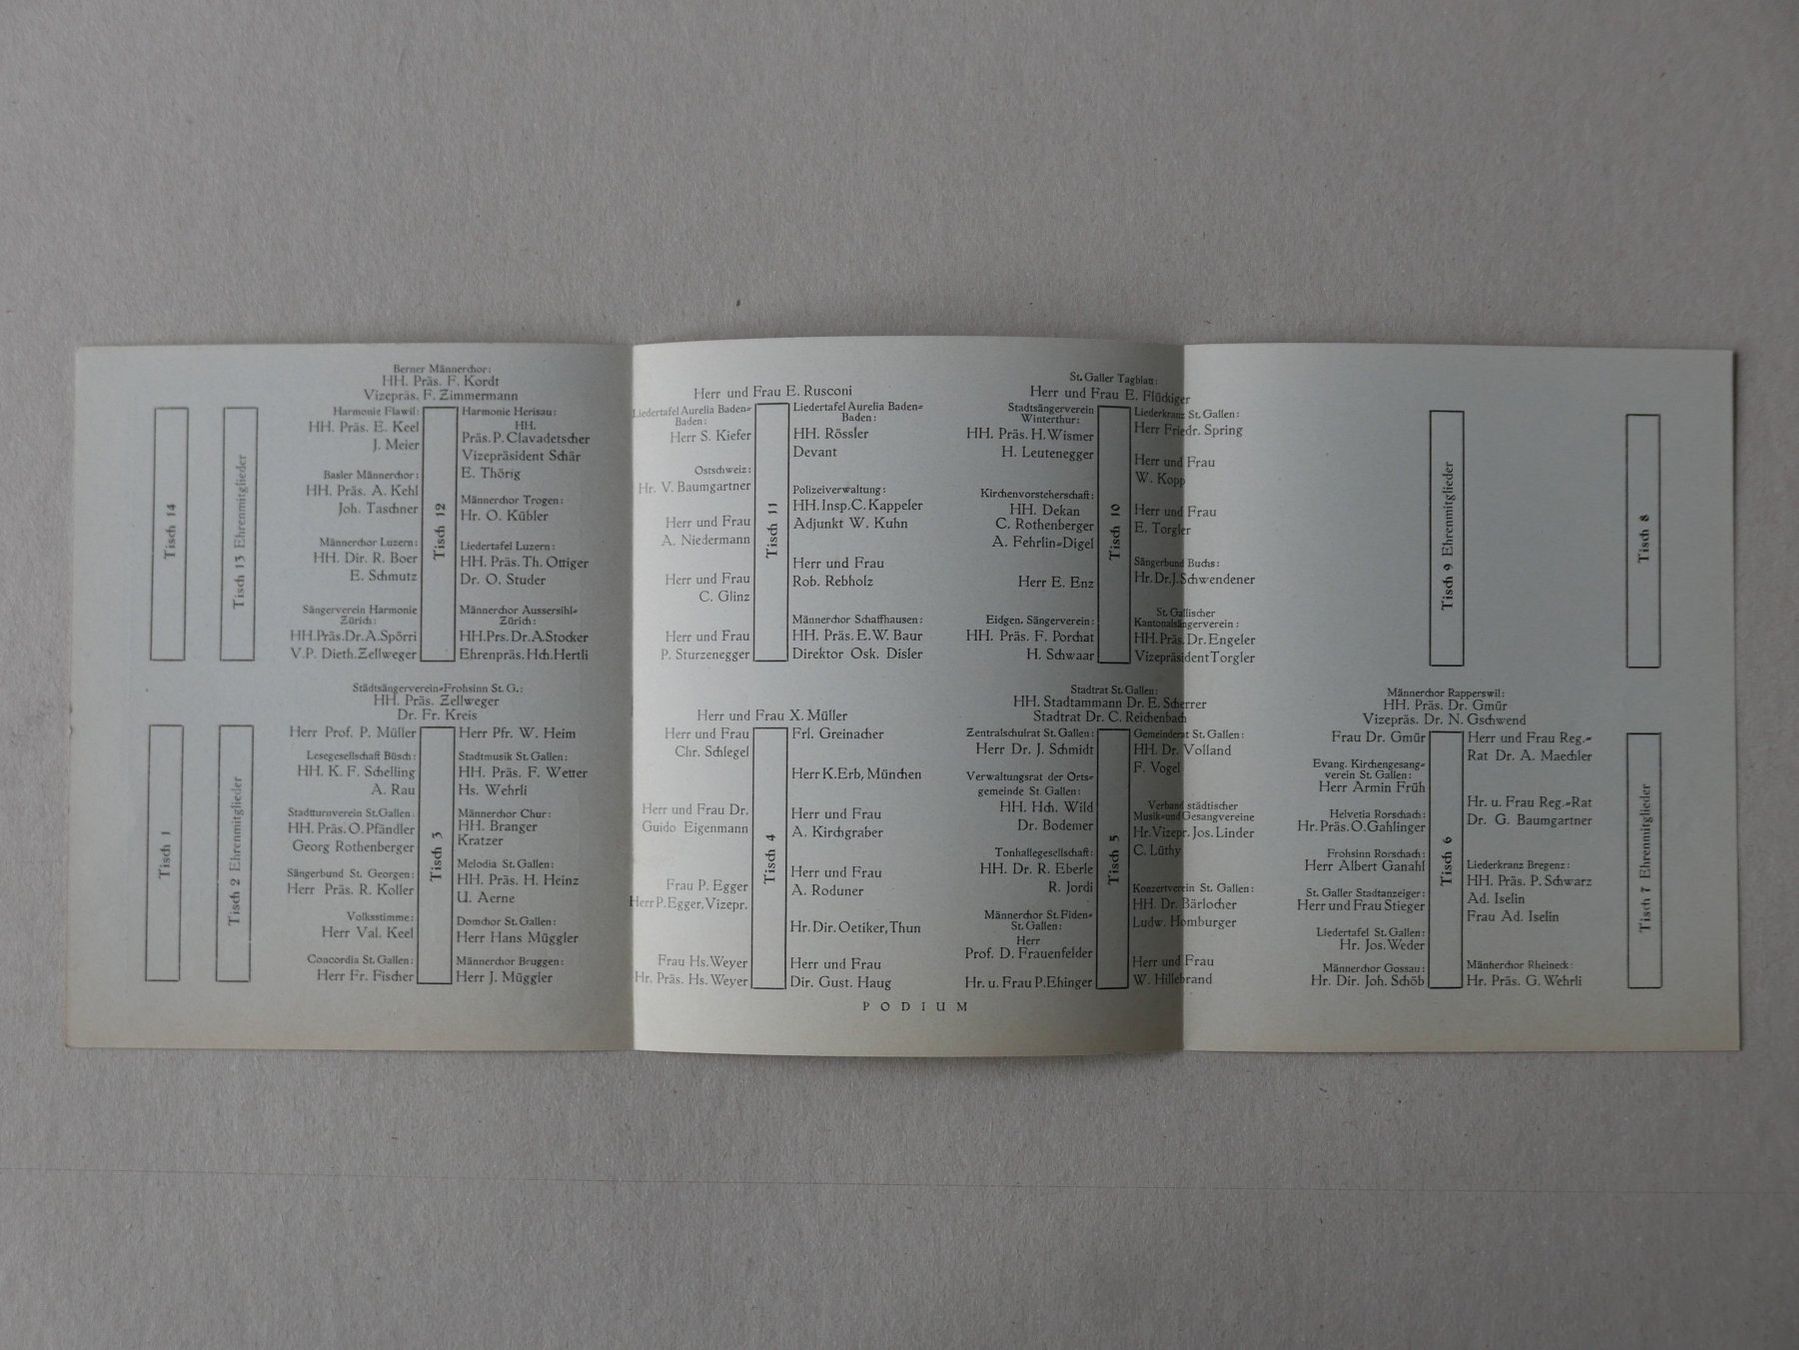 Tisch 14
Tisch 13 Ehrenmitglieder
Berner Männerchor:
HH. Präs. F. Kordt
Vizepräs. F. Zimmermann
Harmonie Flawil:
HH. Präs. E. Keel
J. Meier
Basler Männerchor:
HH. Präs. A. Kehl
Joh. Taschner
Männerchor Luzern:
HH. Dir. R. Boer
E. Schmutz
Sängerverein Harmonie
Zürich:
HH.Präs.Dr.A.Spörri
V.P. Dieth.Zellweger
Tisch 12
Harmonie Herisau:
HH.
Präs. P. Clavadetscher
Vizepräsident Schär
E. Thörig
Männerchor Trogen:
Hr. O. Kübler
Liedertafel Luzern:
HH. Präs. Th. Ottiger
Dr. O. Studer
Männerchor Aussersihl=
Zürich:
HH.Prs. Dr. A.Stocker
Ehrenpräs. Hch. Hertli
Herr und Frau E. Rusconi
Liedertafel Aurelia Baden=
Baden:
Herr S. Kiefer
Ostschweiz:
Hr. V. Baumgartner
Herr und Frau
A. Niedermann
Herr und Frau
C. Glinz
Herr und Frau
P. Sturzenegger
Tisch 11
Liedertafel Aurelia Baden=
Baden:
HH. Rössler
Devant
Polizeiverwaltung:
HH. Insp. C. Kappeler
Adjunkt W. Kuhn
Herr und Frau
Rob. Rebholz
Männerchor Schaffhausen:
HH. Präs. E.W. Baur
Direktor Osk. Disler
St. Galler Tagblatt:
Herr und Frau E. Flückiger
Stadtsängerverein
Winterthur:
HH. Präs. H. Wismer
H. Leutenegger
Kirchenvorsteherschaft:
HH. Dekan
C. Rothenberger
A. Fehrlin=Digel
Herr E. Enz
Eidgen. Sängerverein:
HH. Präs. F. Porchat
H. Schwaar
Tisch 10
Liederkranz St. Gallen:
Herr Friedr. Spring
Herr und Frau
W. Kopp
Herr und Frau
E. Torgler
Sängerbund Buchs:
Hr. Dr. J. Schwendener
St. Gallischer
Kantonalsängerverein:
HH. Präs. Dr. Engeler
Vizepräsident Torgler
Tisch 9 Ehrenmitglieder
Tisch 8
Tisch 1
Tisch 2 Ehrenmitglieder
Städtsängerverein=Frohsinn St. G.:
HH. Präs. Zellweger
Dr. Fr. Kreis
Herr Prof. P. Müller
Lesegesellschaft Büsch:
HH. K. F. Schelling
A. Rau
Stadtturnverein St. Gallen:
HH. Präs. O. Pfändler
Georg Rothenberger
Sängerbund St. Georgen:
Herr Präs. R. Koller
Volksstimme:
Herr Val. Keel
Concordia St. Gallen:
Herr Fr. Fischer
Tisch 3
Herr Pfr. W. Heim
Stadtmusik St. Gallen:
HH. Präs. F. Wetter
Hs. Wehrli
Männerchor Chur:
HH. Branger
Kratzer
Melodia St. Gallen:
HH. Präs. H. Heinz
U. Aerne
Domchor St. Gallen:
Herr Hans Müggler
Männerchor Bruggen:
Herr J. Müggler
Herr und Frau X. Müller
Herr und Frau
Chr. Schlegel
Herr und Frau Dr.
Guido Eigenmann
Frau P. Egger
Herr P. Egger, Vizepr.
Frau Hs. Weyer
Hr. Präs. Hs. Weyer
Tisch 4
Frl. Greinacher
Herr K. Erb, München
Herr und Frau
A. Kirchgraber
Herr und Frau
A. Roduner
Hr. Dir. Oetiker, Thun
Herr und Frau
Dir. Gust. Haug
Stadtrat St. Gallen:
HH. Stadtammann Dr. E. Scherrer
Stadtrat Dr. C. Reichenbach
Zentralschulrat St. Gallen:
Herr Dr. J. Schmidt
Verwaltungsrat der Orts=
gemeinde St. Gallen:
HH. Hch. Wild
Dr. Bodemer
Tonhallegesellschaft:
HH. Dr. R. Eberle
R. Jordi
Männerchor St. Fiden=
St. Gallen:
Herr
Prof. D. Frauenfelder
Hr. u. Frau P. Ehinger
Tisch 5
Gemeinderat St. Gallen:
HH. Dr. Volland
F. Vogel
Verband städtischer
Musik= und Gesangvereine
Hr. Vizepr. Jos. Linder
C. Lüthy
Konzertverein St. Gallen:
HH. Dr. Bärlocher
Ludw. Homburger
Herr und Frau
W. Hillebrand
Männerchor Rapperswil:
HH. Präs. Dr. Gmür
Vizepräs. Dr. N. Gschwend
Frau Dr. Gmür
Evang. Kirchengesang=
verein St. Gallen:
Herr Armin Früh
Helvetia Rorschach:
Hr. Präs. O. Gahlinger
Frohsinn Rorschach:
Herr Albert Ganahl
St. Galler Stadtanzeiger:
Herr und Frau Stieger
Liedertafel St. Gallen:
Hr. Jos. Weder
Männerchor Gossau:
Hr. Dir. Joh. Schöb
Tisch 6
Herr und Frau Reg.=
Rat Dr. A. Maechler
Hr. u. Frau Reg.=Rat
Dr. G. Baumgartner
Liederkranz Bregenz:
HH. Präs. P. Schwarz
Ad. Iselin
Frau Ad. Iselin
Männerchor Rheineck:
Hr. Präs. G. Wehrli
Tisch 7 Ehrenmitglieder
PODIUM